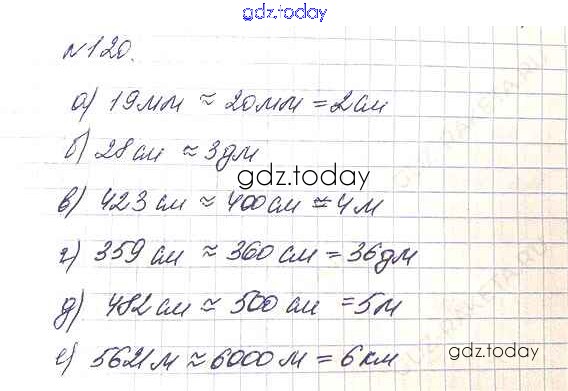 gdz.today
№120.
а) 19мм ≈ 20мм = 2см
б) 28см ≈ 3дм
gdz.today
в) 423см ≈ 400см = 4м
г) 359см ≈ 360см = 36дм
д) 482см ≈ 500см = 5м
е) 5621м ≈ 6000м = 6км
gdz.today